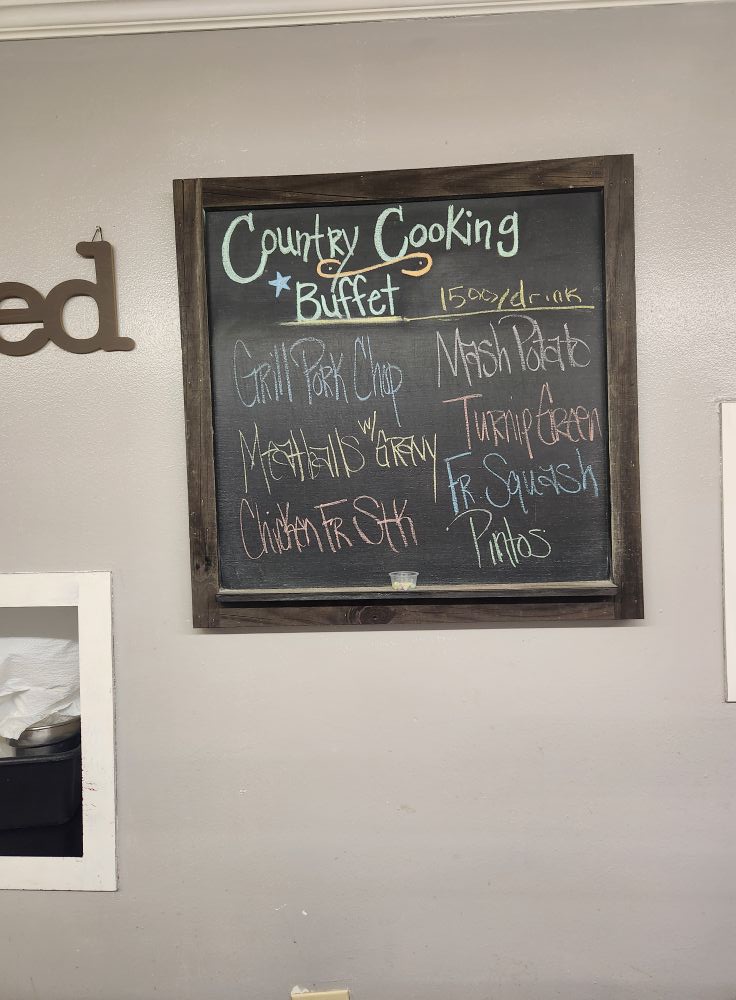 ed
Country Cooking
Buffet 15.00/drink
Grill Pork Chop
Meatballs w/ Gravy
Chicken Fr Stk
Mash Potato
Turnip Green
Fr. Squash
Pintos